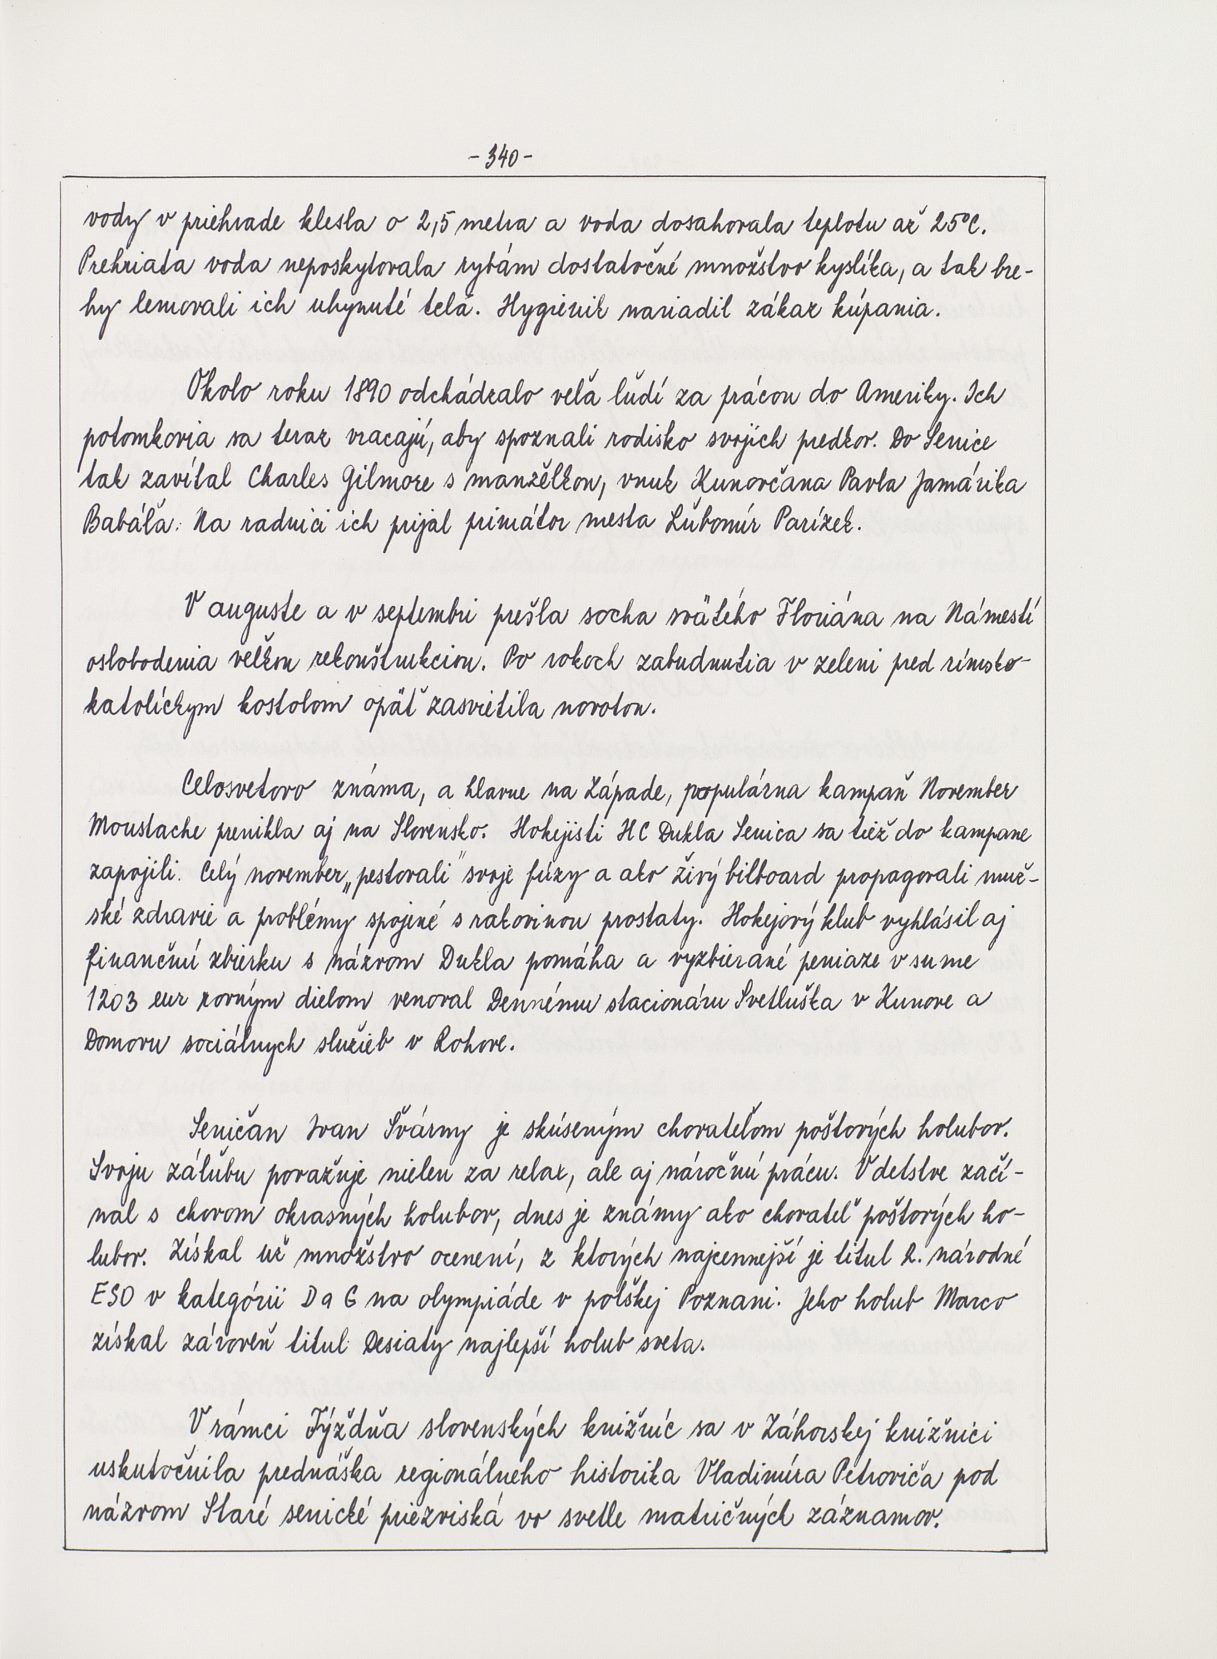 - 340 -
vody v priehrade klesla o 2,5 metra a voda dosahovala teplotu až 25°C.
Prehriata voda neposkytovala rybám dostatočné množstvo kyslíka, a tak bre-
hy lemovali ich uhynuté telá. Hygienik nariadil zákaz kúpania.
Okolo roku 1890 odchádzalo veľa ľudí za prácou do Ameriky. Ich
potomkovia sa teraz vracajú, aby spoznali rodisko svojich predkov. Do Senice
tak zavítal Charles Gilmore s manželkou, vnuk Kunovčana Pavla Jamárika
Babála. Na radnici ich prijal primátor mesta Ľubomír Parízek.
V auguste a v septembri prešla socha svätého Floriána na Námestí
oslobodenia veľkou rekonštrukciou. Po rokoch zabudnutia v zeleni pred rímsko-
katolíckym kostolom opäť zasvietila novotou.
Celosvetovo známa, a hlavne na Západe, populárna kampaň November
Moustache prenikla aj na Slovensko. Hokejisti HC Dukla Senica sa tiež do kampane
zapojili. Celý november „pestovali" svoje fúzy a ako živý bilboard propagovali muž-
ské zdravie a problémy spojené s rakovinou prostaty. Hokejový klub vyhlásil aj
finančnú zbierku s názvom Dukla pomáha a vyzbierané peniaze v sume
1203 eur rovným dielom venoval Dennému stacionáru Svetluška v Kunove a
Domovu sociálnych služieb v Rohove.
Seničan Ivan Švárny je skúseným chovateľom poštových holubov.
Svoju záľubu považuje nielen za relax, ale aj náročnú prácu. V detstve začí-
nal s chovom okrasných holubov, dnes je známy ako chovateľ poštových ho-
lubov. Získal už množstvo ocenení, z ktorých najcennejší je titul 2. národné
ESO v kategórii D a G na olympiáde v poľskej Poznani. Jeho holub Marco
získal zároveň titul Desiaty najlepší holub sveta.
V rámci Týždňa slovenských knižníc sa v Záhorskej knižnici
uskutočnila prednáška regionálneho historika Vladimíra Petroviča pod
názvom Staré senické priezviská vo svetle matričných záznamov.